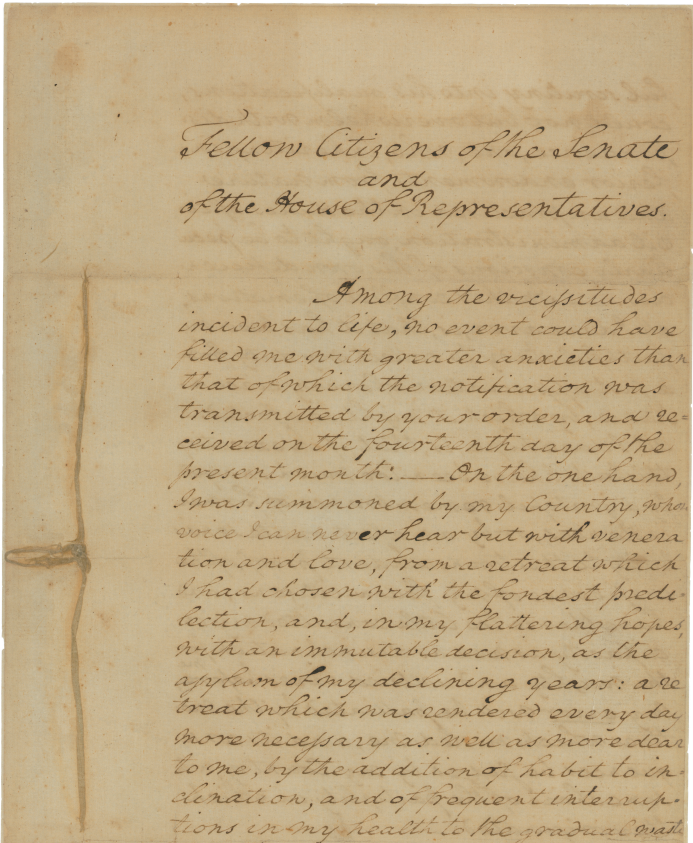 Fellow Citizens of the Senate
and
of the House of Representatives.
Among the vicissitudes
incident to life, no event could have
filled me with greater anxieties than
that of which the notification was
transmitted by your order, and re=
ceived on the fourteenth day of the
present month: — On the one hand,
I was summoned by my Country, whose
voice I can never hear but with venera
tion and love, from a retreat which
I had chosen with the fondest predi-
lection, and, in my flattering hopes,
with an immutable decision, as the
asylum of my declining years: a re
treat which was rendered every day
more necessary as well as more dear
to me, by the addition of habit to in-
clination, and of frequent interrup-
tions in my health to the gradual waste